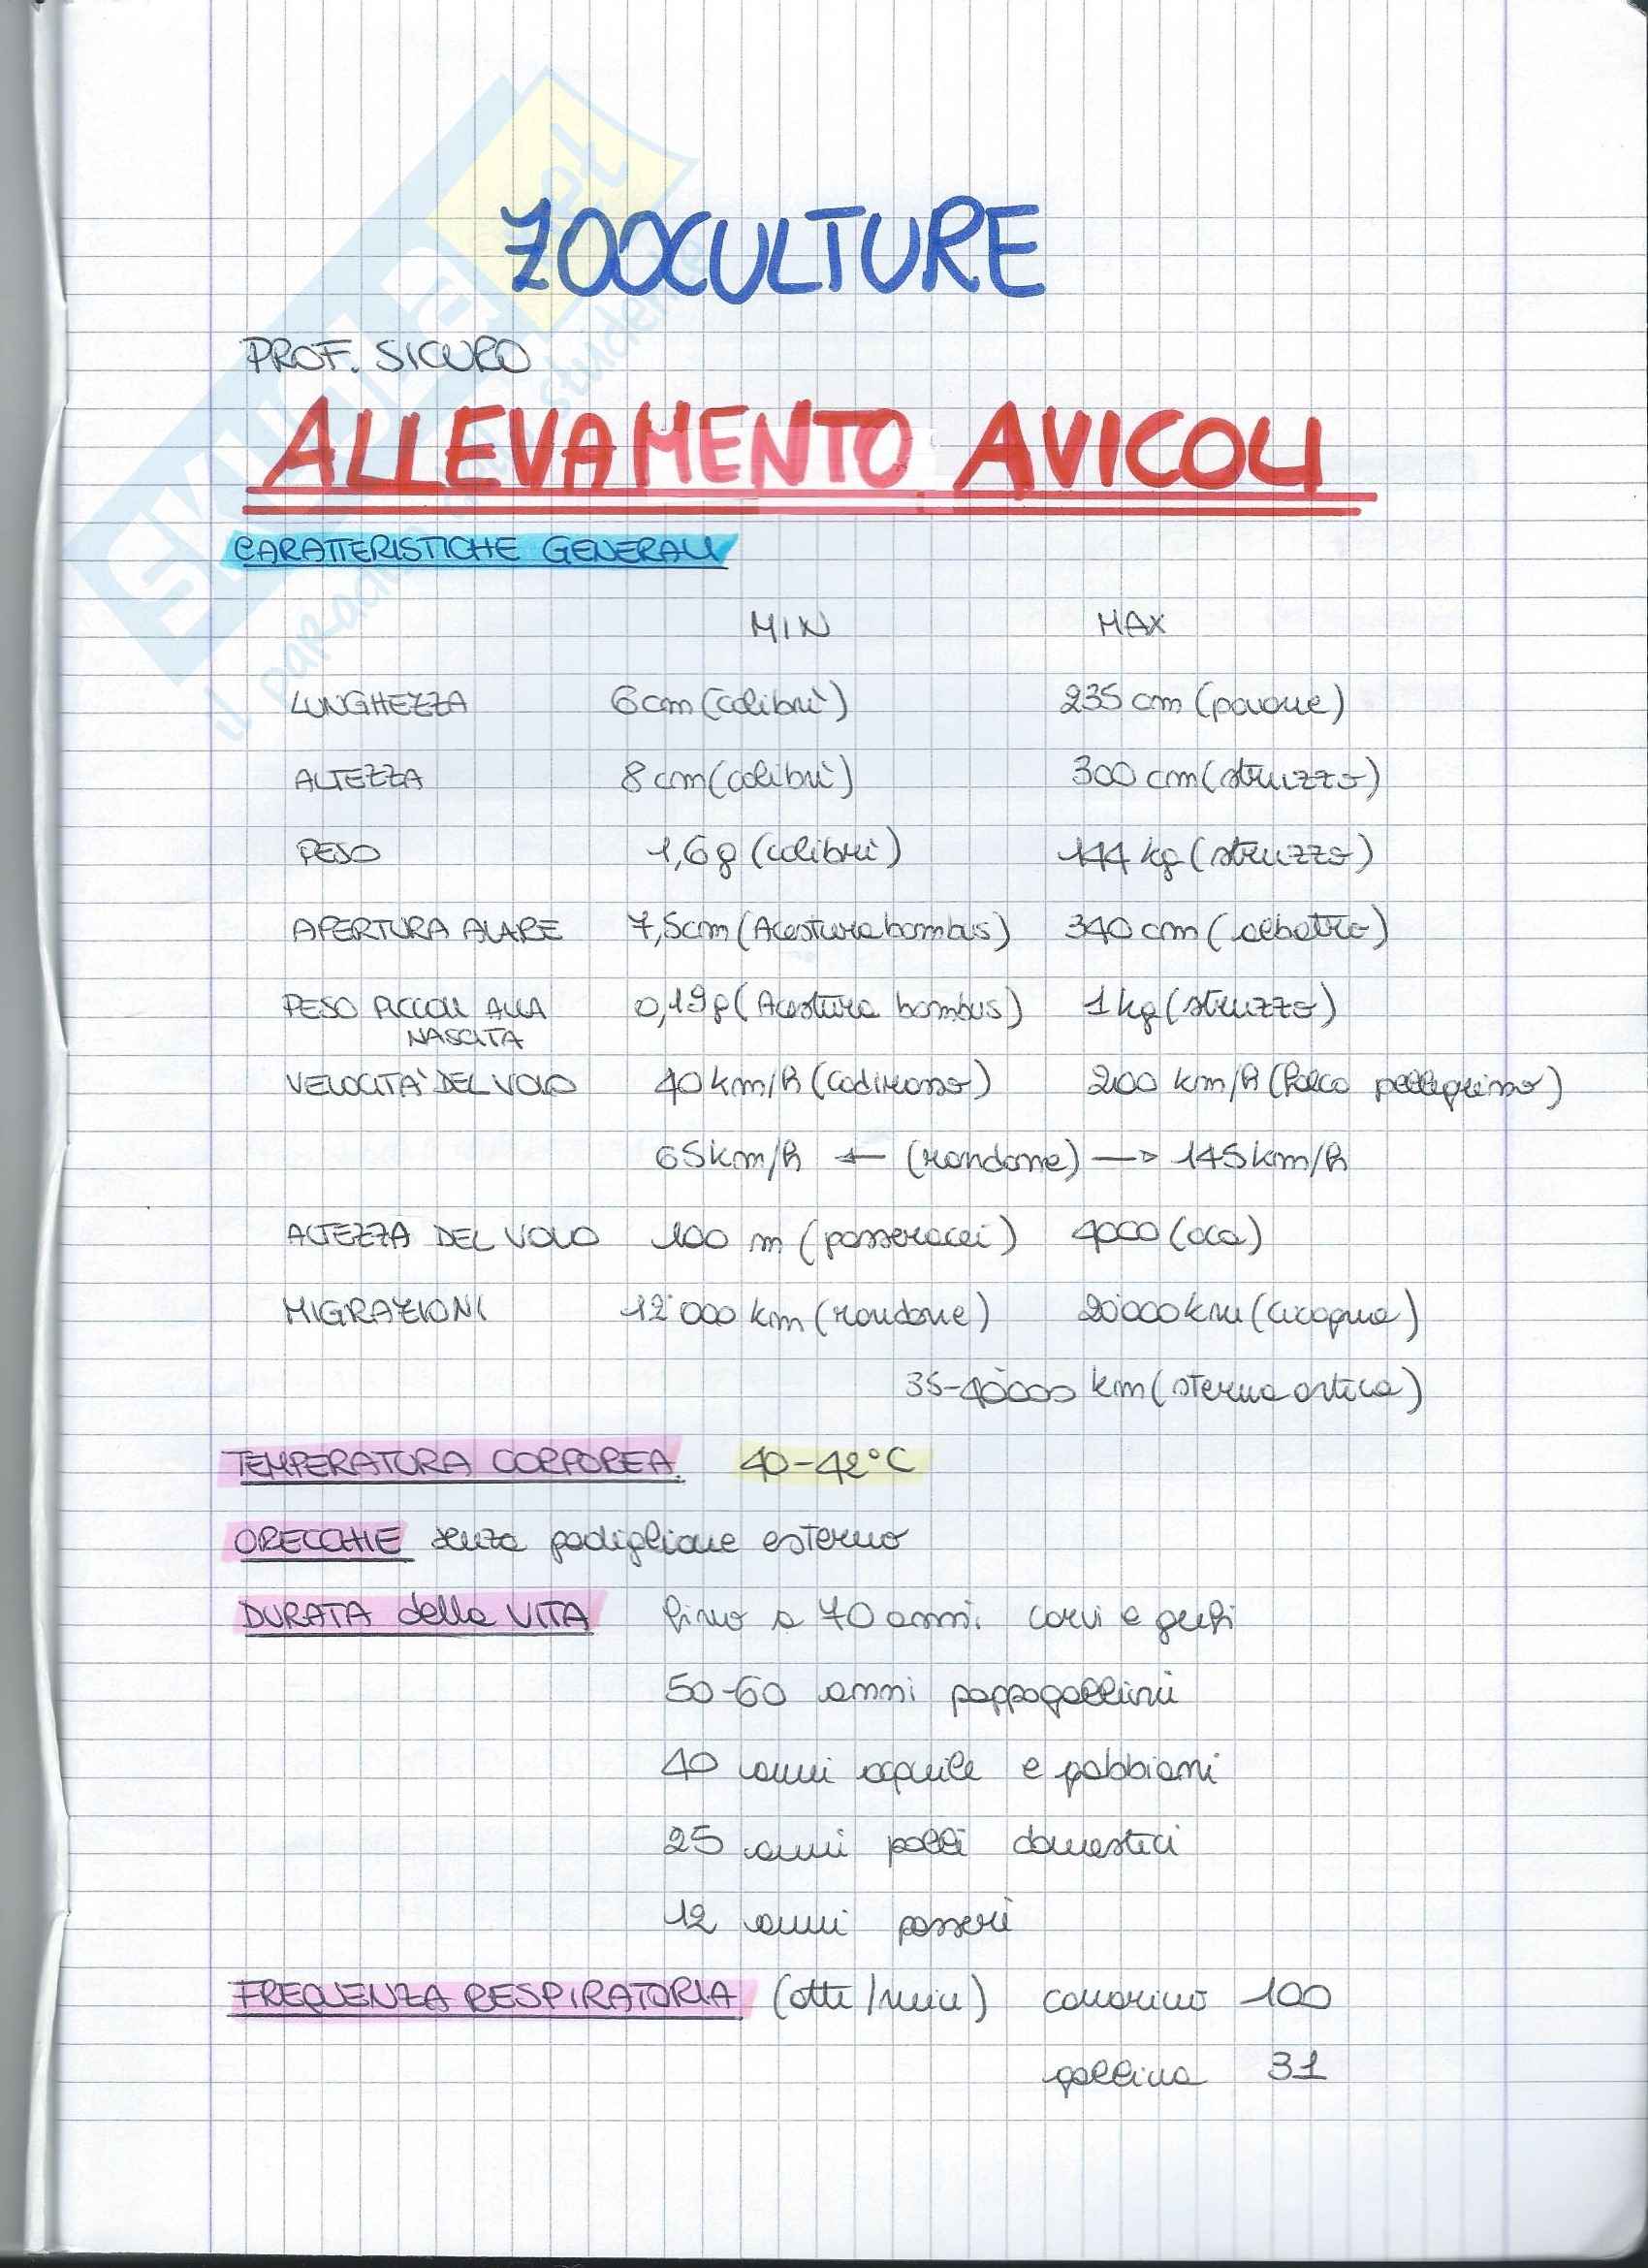 ZOOCULTURE
PROF. SICURO
ALLEVAMENTO AVICOLI
CARATTERISTICHE GENERALI
MIN MAX
LUNGHEZZA 6 cm (colibrì) 235 cm (pavone)
ALTEZZA 8 cm (colibrì) 300 cm (struzzo)
PESO 1,6 g (colibrì) 144 kg (struzzo)
APERTURA ALARE 7,5 cm (Acestura bombus) 340 cm (albatro)
PESO PICCOLI ALLA NASCITA 0,19 g (Acestura bombus) 1 kg (struzzo)
VELOCITÀ DEL VOLO 40 km/h (codirosso) 200 km/h (falco pellegrino)
65 km/h ← (rondone) → 145 km/h
ALTEZZA DEL VOLO 100 m (passeracei) 4000 (oca)
MIGRAZIONI 12'000 km (rondone) 20'000 km (cicogna)
35-40'000 km (sterna artica)
TEMPERATURA CORPOREA 40-42°C
ORECCHIE senza padiglione esterno
DURATA della VITA fino a 70 anni: corvi e gufi
50-60 anni pappagallini
40 anni aquile e gabbiani
25 anni polli domestici
12 anni passeri
FREQUENZA RESPIRATORIA (atti/min) canarino 100
gallina 31
SKUOLA.net
il paradiso dello studente